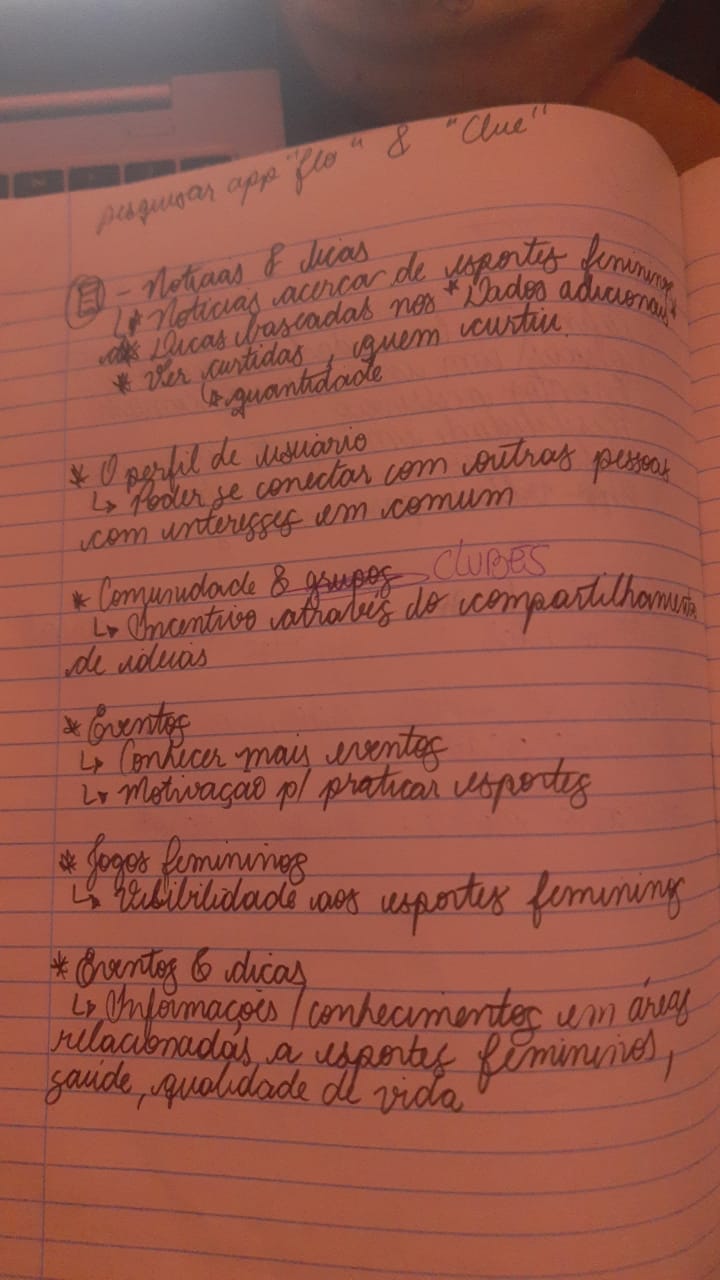 pesquisar app "flo" & "Clue"
- Notícias & dicas
↳ * Notícias acerca de esportes femininos
* Dicas baseadas nos * Dados adicionais *
* Ver curtidas, quem curtiu
↳ quantidade
* O perfil de usuário
↳ Poder se conectar com outras pessoas
com interesses em comum
* Comunidade & grupos CLUBES
↳ Incentivo através do compartilhamento
de ideias
* Eventos
↳ Conhecer mais eventos
↳ Motivação p/ praticar esportes
* Jogos femininos
↳ Visibilidade aos esportes femininos
* Eventos & dicas
↳ Informações / conhecimentos em áreas
relacionadas a esportes femininos,
saúde, qualidade de vida